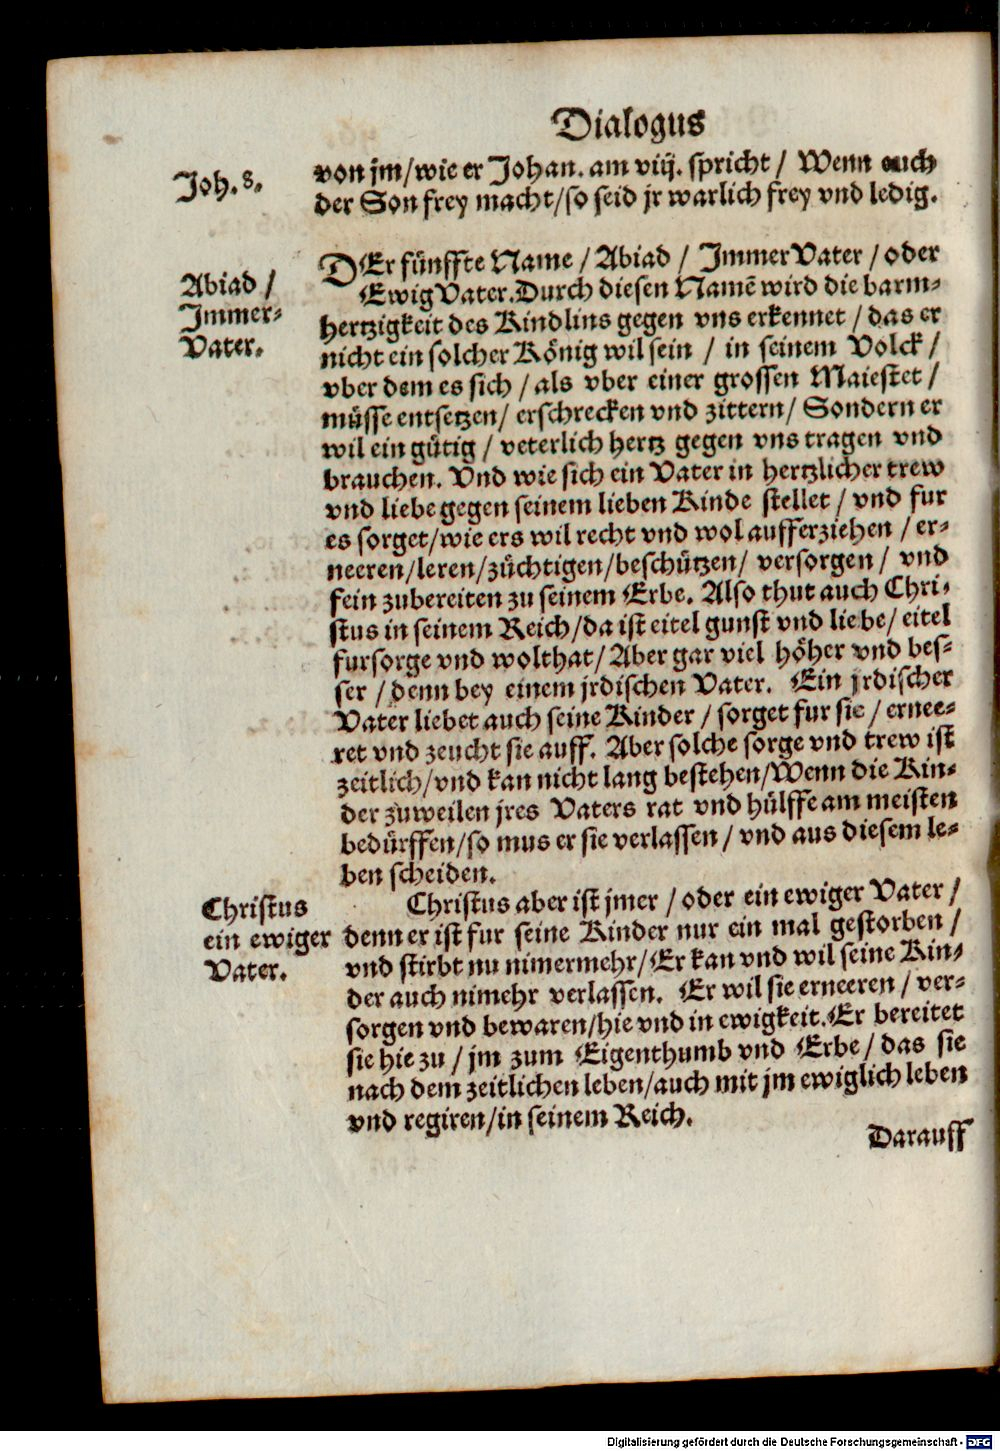 Dialogus
Joh. 8.
von jm/wie er Johan. am viij. spricht/ Wenn euch
der Son frey macht/so seid jr warlich frey vnd ledig.
Abiad /
Jmmer-
Vater.
DEr fünffte Name / Abiad / JmmerVater / oder
EwigVater. Durch diesen Namẽ wird die barm-
hertzigkeit des Kindlins gegen vns erkennet / das er
nicht ein solcher König wil sein / in seinem Volck /
vber dem es sich / als vber einer grossen Maiestet /
müsse entsetzen/ erschrecken vnd zittern/ Sondern er
wil ein gütig / veterlich hertz gegen vns tragen vnd
brauchen. Vnd wie sich ein Vater in hertzlicher trew
vnd liebe gegen seinem lieben Kinde stellet / vnd fur
es sorget/wie ers wil recht vnd wol aufferziehen / er-
neeren/leren/züchtigen/beschützen/ versorgen / vnd
fein zubereiten zu seinem Erbe. Also thut auch Chri-
stus in seinem Reich/da ist eitel gunst vnd liebe/ eitel
fursorge vnd wolthat/ Aber gar viel höher vnd bes-
ser / denn bey einem jrdischen Vater. Ein jrdischer
Vater liebet auch seine Kinder / sorget fur sie / ernee-
ret vnd zeucht sie auff. Aber solche sorge vnd trew ist
zeitlich/vnd kan nicht lang bestehen/Wenn die Kin-
der zuweilen jres Vaters rat vnd hülffe am meisten
bedürffen/so mus er sie verlassen / vnd aus diesem le-
ben scheiden.
Christus
ein ewiger
Vater.
Christus aber ist jmer / oder ein ewiger Vater /
denn er ist fur seine Kinder nur ein mal gestorben /
vnd stirbt nu nimermehr/Er kan vnd wil seine Kin-
der auch nimehr verlassen. Er wil sie erneeren / ver-
sorgen vnd bewaren/hie vnd in ewigkeit. Er bereitet
sie hie zu / jm zum Eigenthumb vnd Erbe / das sie
nach dem zeitlichen leben/auch mit jm ewiglich leben
vnd regiren/in seinem Reich.
Darauff
Digitalisierung gefördert durch die Deutsche Forschungsgemeinschaft - DFG